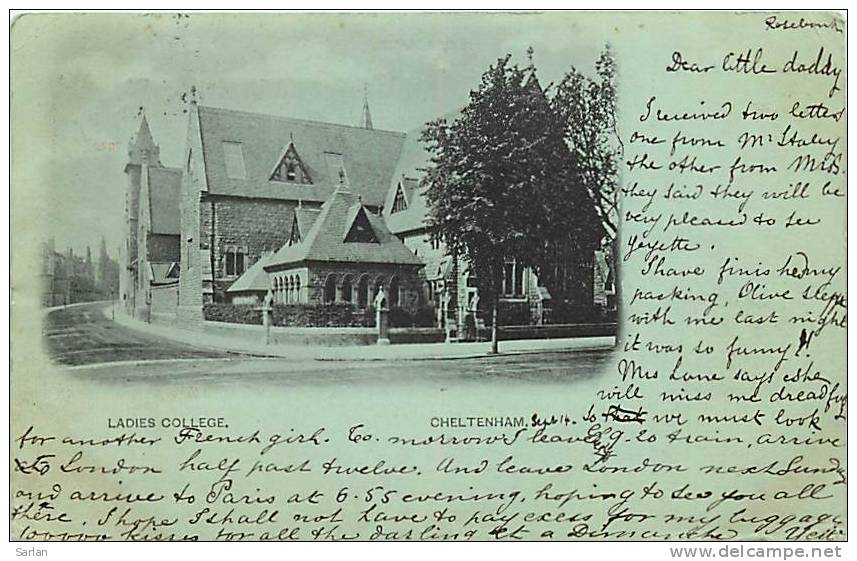 Rosebank
Dear little daddy
I received two letters
one from Mr Staley
the other from Mrs S.
they said they will be
very pleased to see
Yeyette.
I have finished my
packing, Olive slept
with me last night
it was so funny!!
Mrs Lane says she
will miss me dreadfully
LADIES COLLEGE. CHELTENHAM. Sept 14. So that we must look
for another French girl. To-morrow I leave by 9.20 train, arrive
to London half past twelve. And leave London next Sunday
and arrive to Paris at 6.55 evening, hoping to see you all
there. I hope I shall not have to pay excess for my luggage
100000 kisses for all the darling et a Dimanche
Sarlan www.delcampe.net